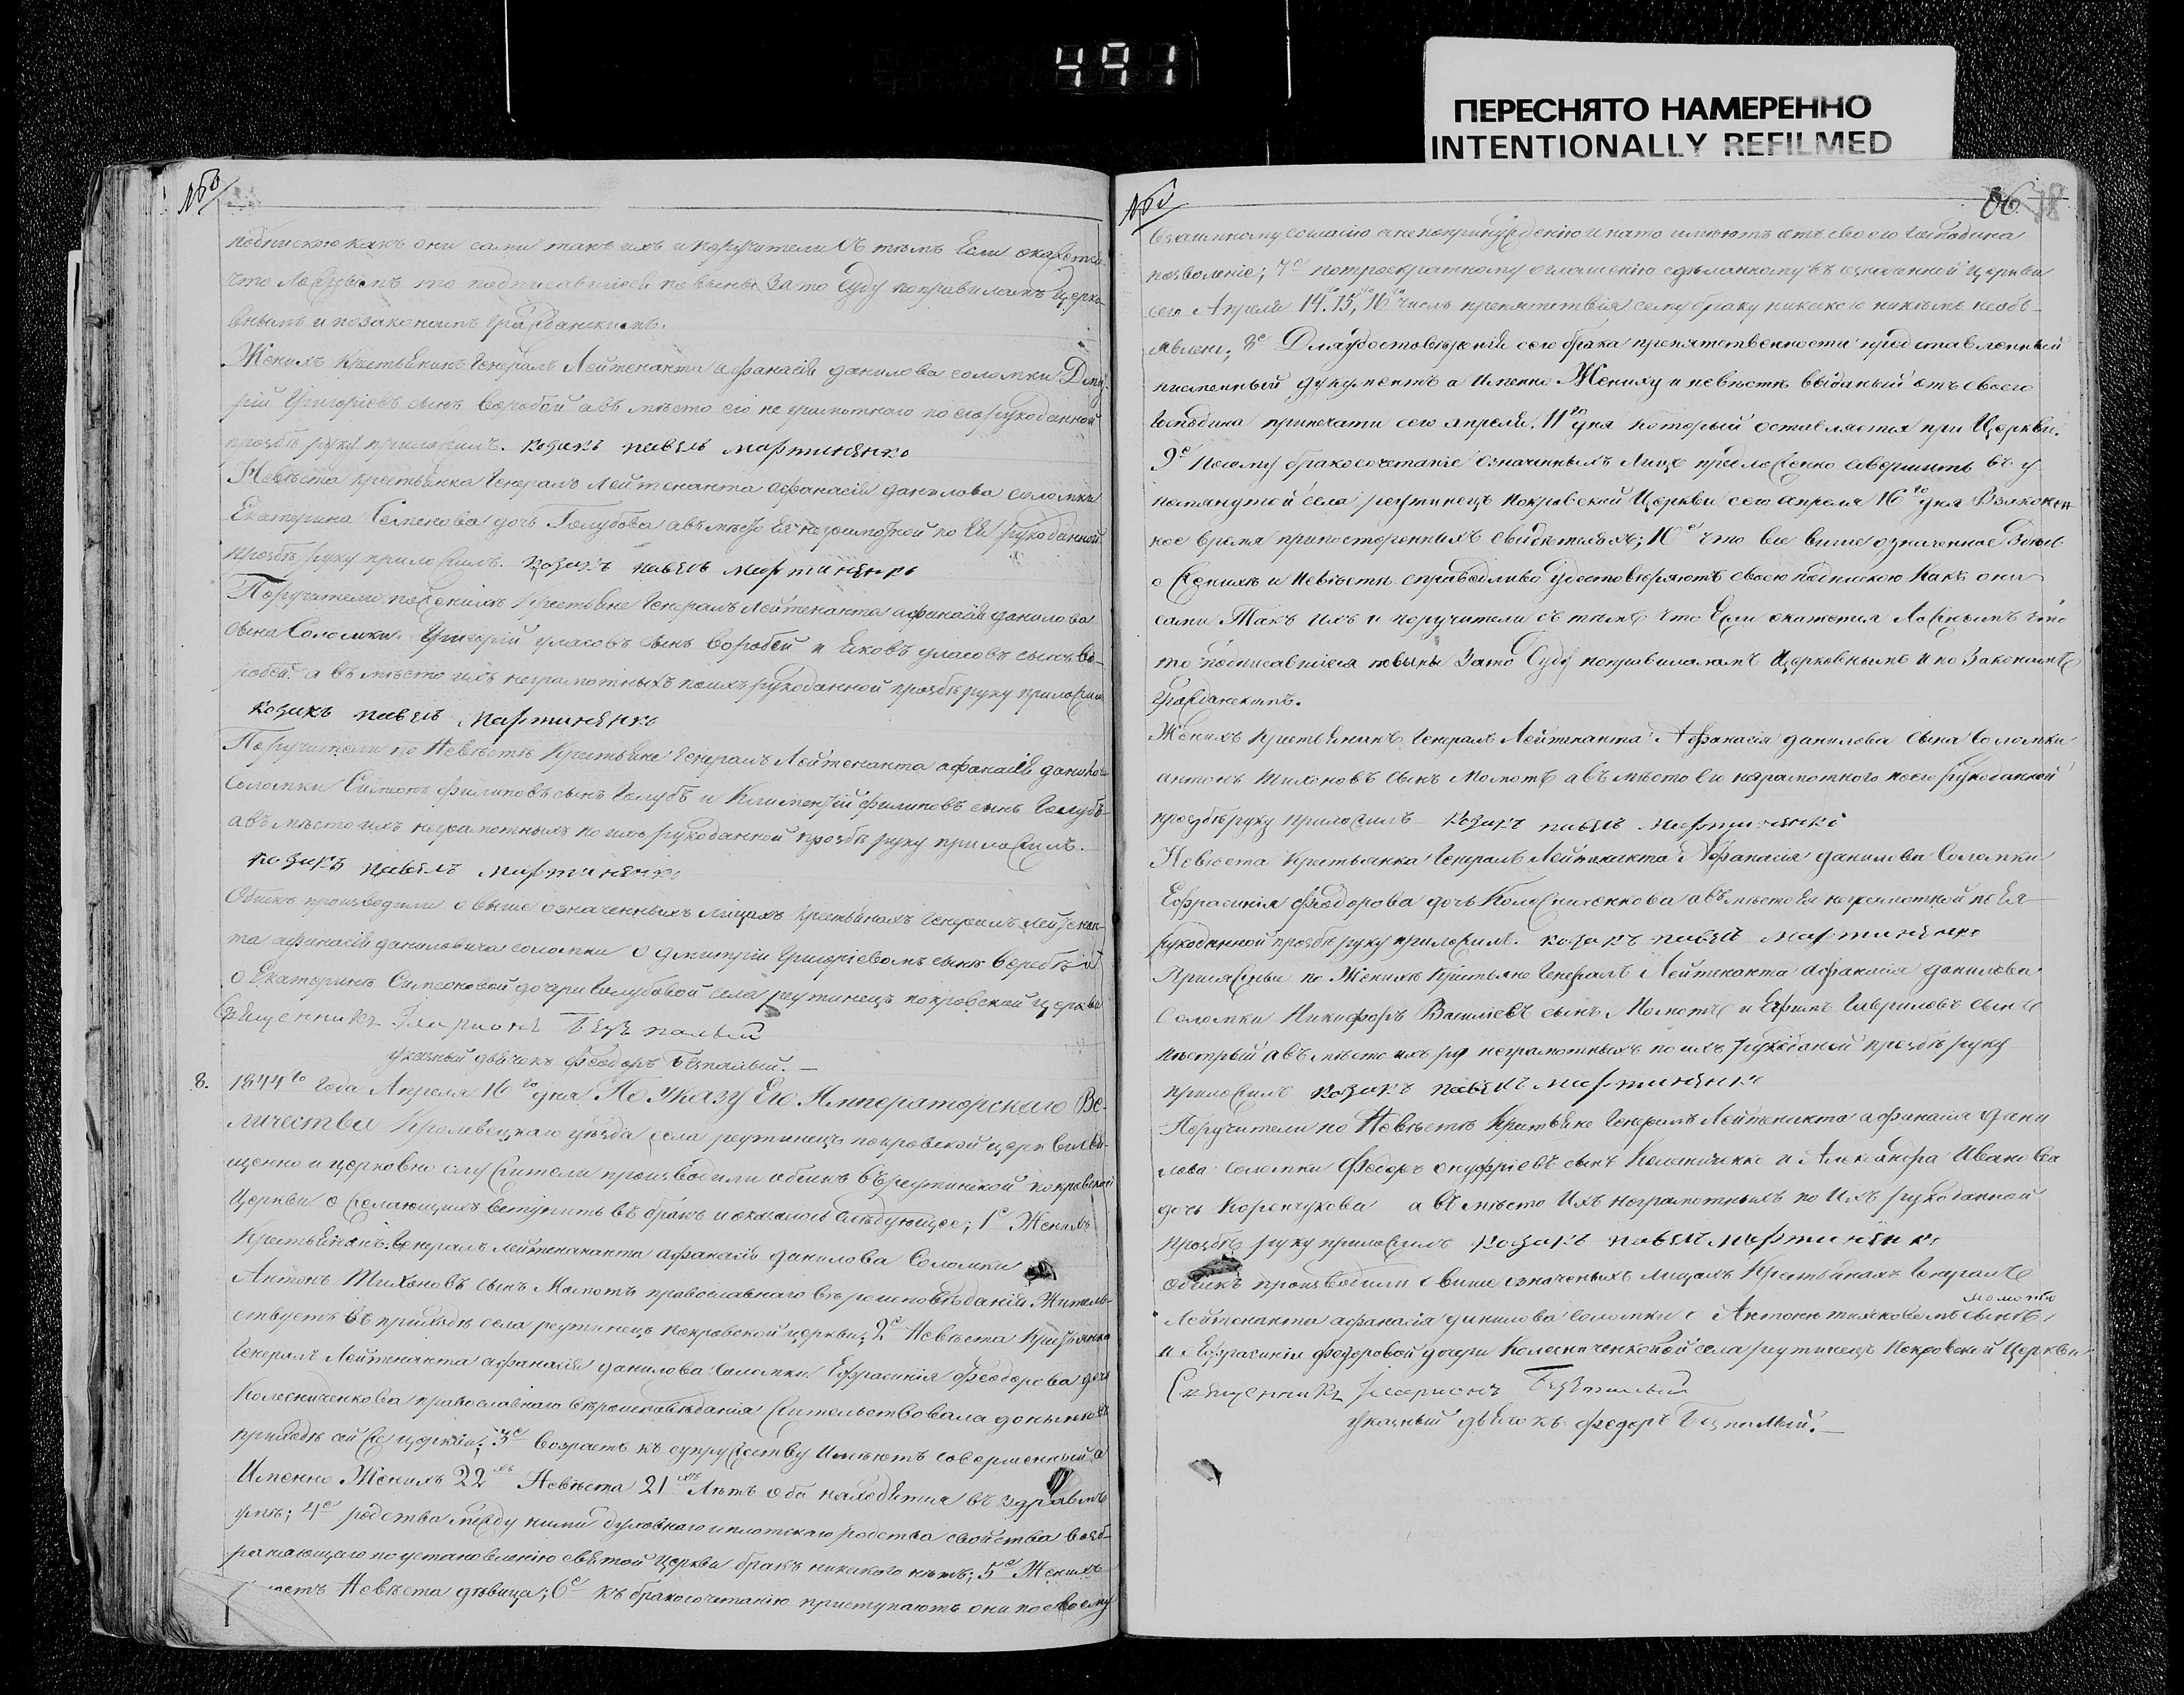 491
ПЕРЕСНЯТО НАМЕРЕННО
INTENTIONALLY REFILMED
86
подпискою какъ они сами такъ ихъ и поручители съ тѣмъ Если окажется
что ложнымъ то подписавшіеся повины за то суду поправиламъ церко-
внымъ и позаконамъ гражданскимъ.
Женихъ крестьянинъ Генералъ Лейтенанта афанасія данилова соломки Дмит-
рій Григоріевъ сынъ воробей авъ мѣсто его не грамотного по его рукоданной
прозбѣ руку приложилъ. козакъ павелъ мартиненко
Невѣста крестьянка Генералъ Лейтенанта афанасія данилова соломки
Екатерина Семенова дочь Голубова авъ мѣсто Ея неграмотной по Ея рукоданной
прозбѣ руку приложилъ. козакъ павелъ мартиненко
Поручители по женихѣ крестьяне Генералъ Лейтенанта афанасія данилова
сына Соломки. Григорій уласовъ сынъ воробей и Яковъ уласовъ сынъ во-
робей. а въ мѣсто ихъ неграмотныхъ поихъ рукоданной прозбѣ руку приложилъ
козакъ павелъ мартиненко
Поручители по Невѣстѣ крестьяне Генералъ Лейтенанта афанасія данилова
соломки Симеонъ филиповъ сынъ Голубъ и Климентій филиповъ сынъ Голубъ
авъ мѣсто ихъ неграмотныхъ по ихъ рукоданной прозбѣ руку приложилъ.
козакъ павелъ мартиненко
Обыкъ производили о выше означенныхъ лицахъ крестьянахъ Генералъ Лейтенан-
та афанасія даниловича соломки о дмитріи Григоріевомъ сынѣ воробьѣ
о Екатеринѣ Симеоновой дочери Голубовой села реутинецъ покровской церкви
Священникъ Иларионъ Безпалый
указный дьячокъ Феодоръ Безпалый. —
8. 1844го Года Апреля 16го дня По Указу Его Императорскаго Ве-
личества Кролевецкаго уѣзда села реутинецъ покровской церкви свя-
щенно и церковно служители производили обыкъ въ реутинской покровской
Церкви о желающихъ вступить въ бракъ и оказалось слѣдующее; 1е Женихъ
Крестьянинъ Генералъ лейтенананта афанасія данилова Соломки
Антонъ Тихоновъ сынъ Мамотъ православнаго вѣроисповѣданія Житель-
ствуетъ въ приходѣ села реутинецъ покровской церкви; 2е Невѣста Крестьянка
Генералъ Лейтенанта афанасія данилова Соломки Ефрасинія Феодорова дочь
Колесниченкова православнаго вѣроисповѣданія жительствовала донынѣ въ
приходѣ сей же церкви; 3е возрастъ къ супружеству Имѣютъ совершенный а
Именно Женихъ 22хъ Невѣста 21хъ Лѣтъ оба находятся въ здравомъ
умѣ; 4е родства между ними духовнаго и плотскаго родства свойства возб-
ранающаго по установленію святой Церкви бракъ никакого нѣтъ; 5е Женихъ
Невѣста дѣвица; 6е къ бракосочетанію приступаютъ они по своему
взаимному согласію а не попринужденію и на то имѣютъ отъ своего Господина
позволеніе; 7е потроекратному оглашенію сдѣланному въ означенной Церкви
сего Апреля 14. 15, 16го числъ препятствія сему браку никакого никѣмъ необъ-
явлено; 8е Для удостовѣренія сего брака препятственности представленный
писменный документъ а Именно Жениху и невѣстѣ выданый отъ своего
Господина припечати сего апреля. 11го дня который оставляется при Церкви.
9е Посему бракосочетаніе означенныхъ Лицъ предложенно совершить въ у-
помянутой села реутинецъ покровской Церкви сего апреля 16го дня в законн
ное время припостороннихъ свидѣтеляхъ; 10е Что все выше означенное
о женихѣ и невѣсти справедливо удостовѣряютъ своею подпискою Какъ они
сами Такъ ихъ и поручители съ тѣмъ что Если окажется Ложнымъ что
то подписавшіеся повины зато Суду поправиламъ Церковнымъ и по Законамъ
Гражданскимъ.
Женихъ крестьянинъ Генералъ Лейтенанта Афанасія данилова сына Соломки
антонъ тихоновъ сынъ мамотъ авъ мѣсто его неграмотного поего рукоданной
прозбѣ руку приложилъ козакъ павелъ мартиненко
Невѣста крестьянка Генералъ Лейтенанта Афанасія данилова Соломки
Ефрасинія Феодорова дочь Колесниченкова авъ мѣсто Ея неграмотной по Ея
рукоданной прозбѣ руку приложилъ. козакъ павелъ мартиненко
по Женихѣ крестьяне Генералъ Лейтенанта афанасія данилова
Соломки Никифоръ Василіевъ сынъ Мамотъ и Ефимъ Гавриловъ сынъ
авъ мѣсто ихъ неграмотныхъ по ихъ рукоданой прозбѣ руку
приложилъ козакъ павелъ мартиненко
Поручители по Невѣстѣ крестьяне Генералъ Лейтенанта афанасія дани
лова соломки Федоръ онуфріевъ сынъ Колесниченко и Александра Иванова
дочь Коренчукова а въ мѣсто Ихъ неграмотныхъ по Ихъ рукоданной
прозбѣ руку приложилъ козакъ павелъ мартиненко
Обыкъ производили о выше означеныхъ лицахъ крестьянахъ Генералъ
мамотѣ
Лейтенанта афанасія данилова соломки о Антонѣ тихоновомъ сынѣ,
и Ефрасиніи федоровой дочери Колесниченковой села реутинецъ Покровской Церкви
Священникъ Иларионъ Безпалый
указный дьячокъ Федоръ Безпалый. —